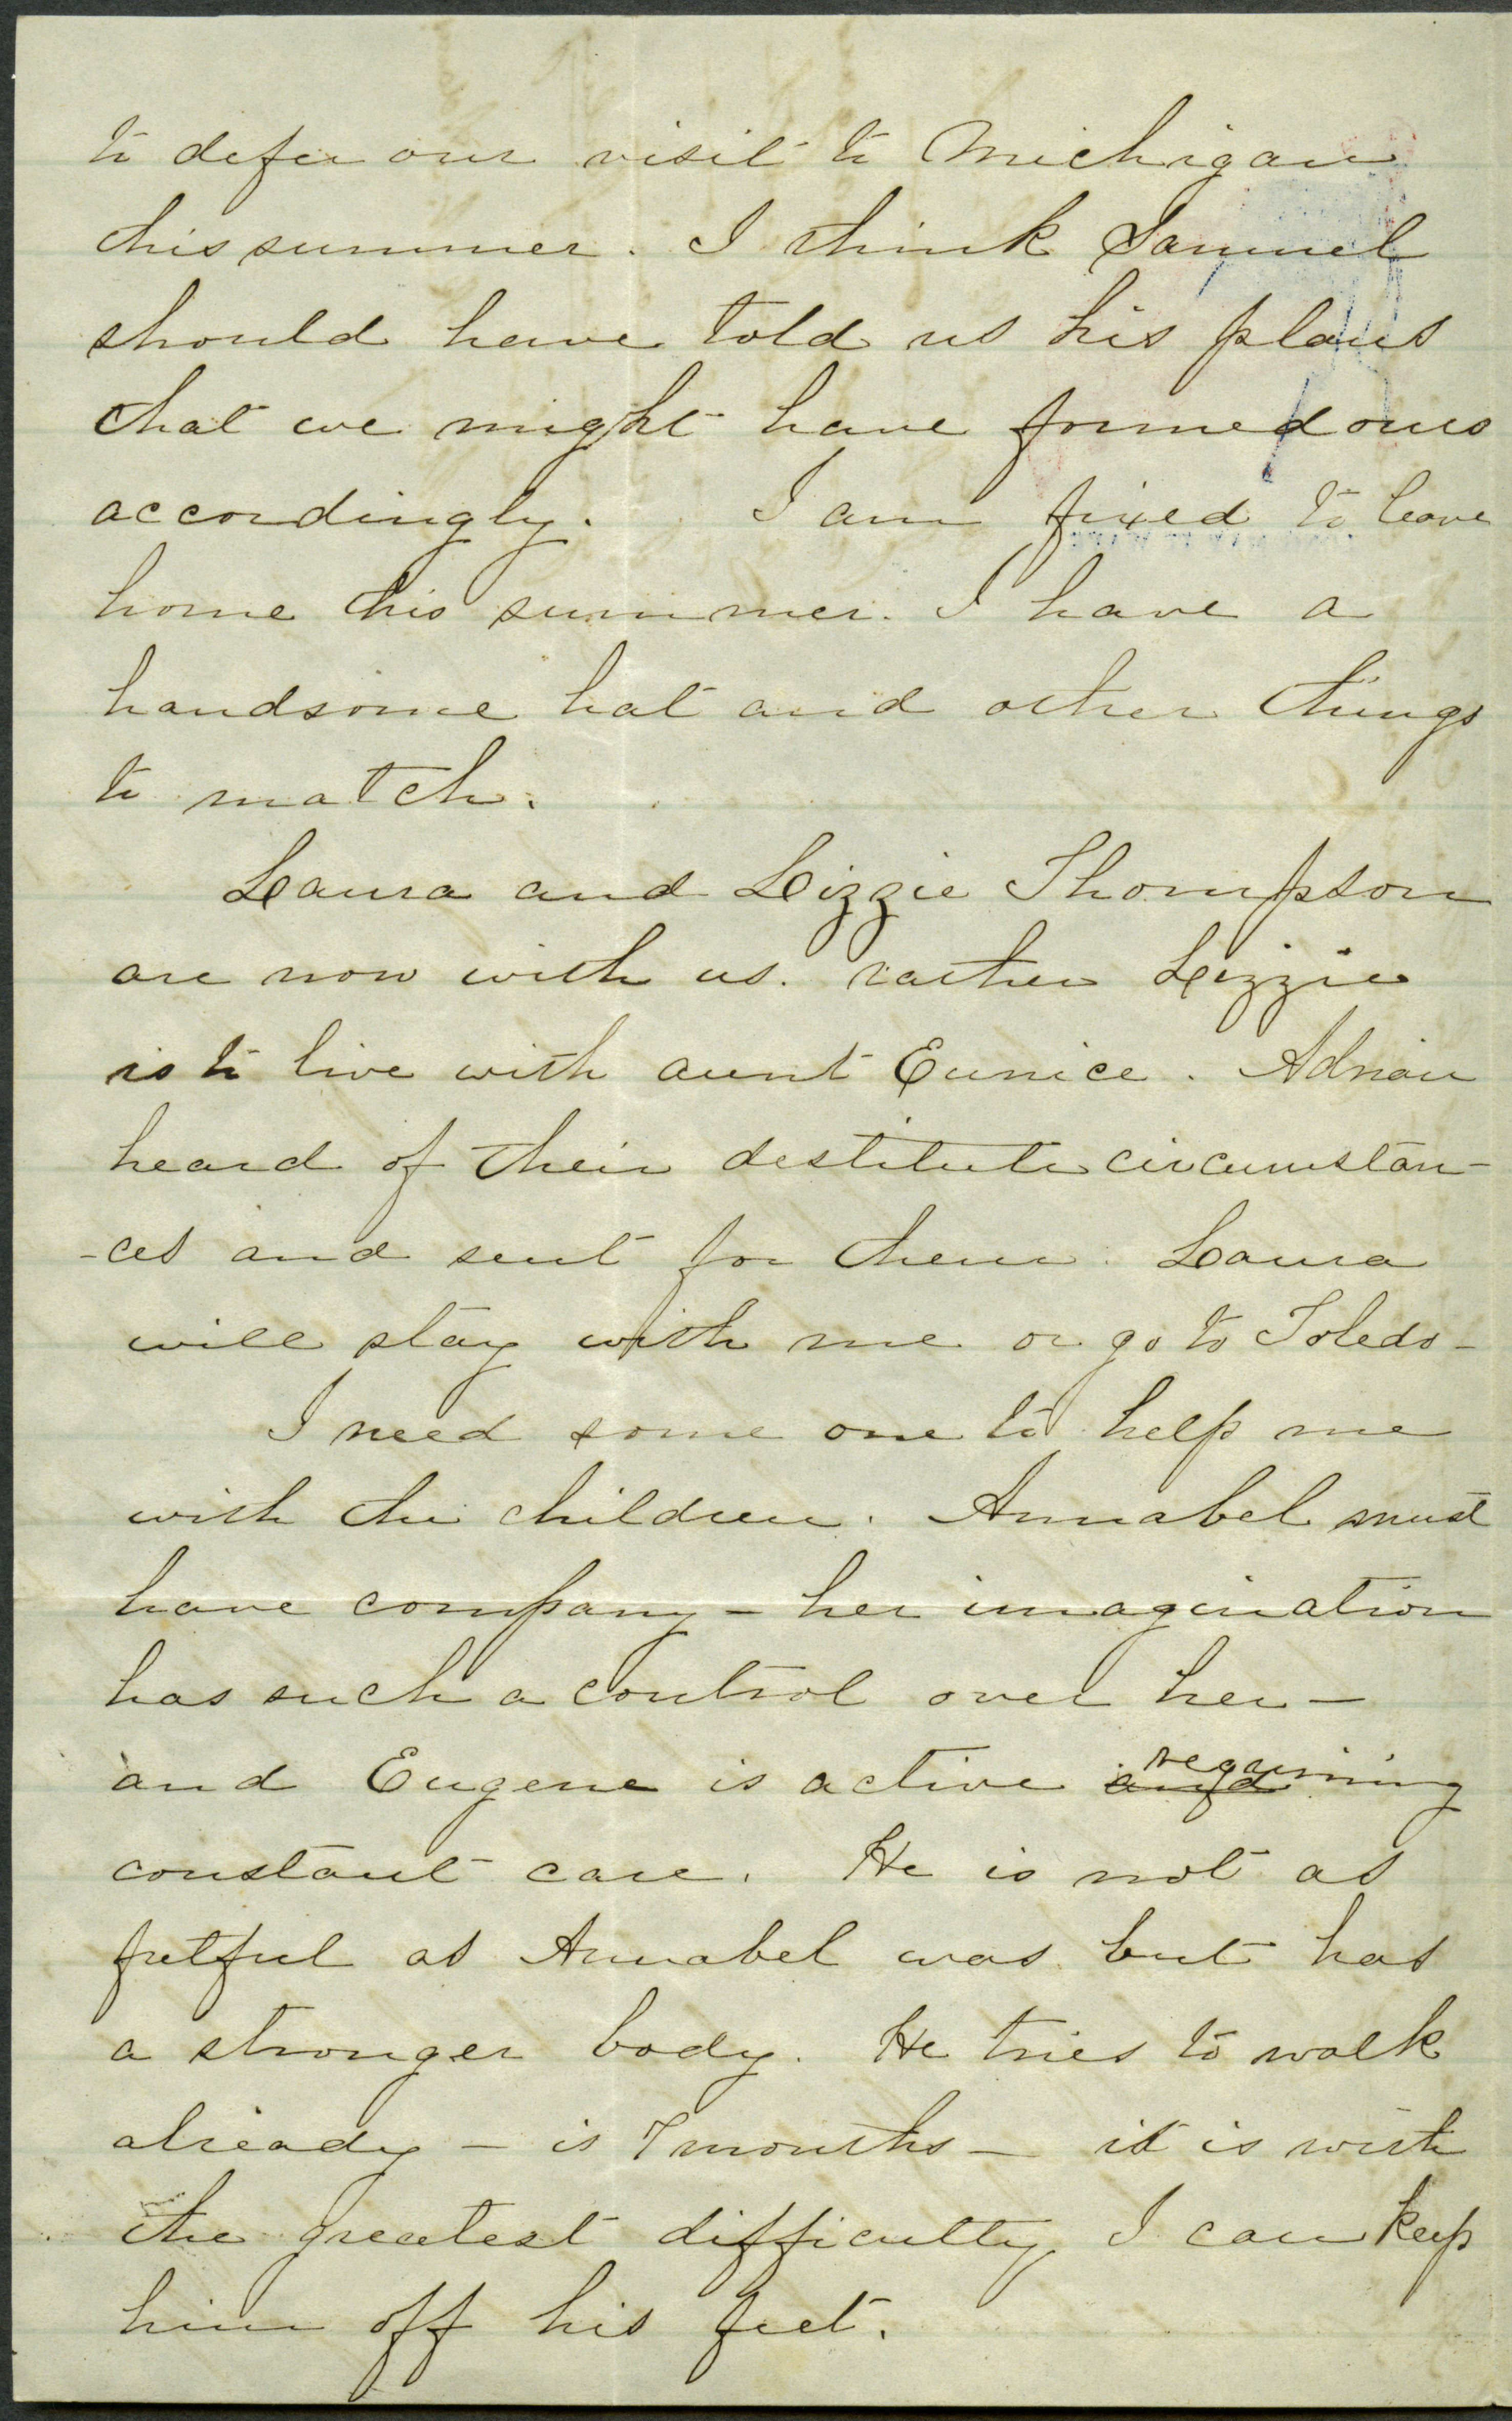 to defer our visit to Michigan
this summer. I think Samuel
should have told us his plans
that we might have formed ours
accordingly. I am fixed to leave
home this summer. I have a
handsome hat and other things
to match.
Laura and Lizzie Thompson
are now with us. rather Lizzie
is to live with aunt Eunice. Adrian
heard of their destitute circumstan-
-ces and sent for them. Laura
will stay with me or go to Toledo-
I need some one to help me
with the children. Annabel must
have company - her imagination
has such a control over her -
and Eugene is active and requiring
constant care. He is not as
fretful as Annabel was but has
a stronger body. He tries to walk
already - is 7 months - it is with
the greatest difficulty I can keep
him off his feet.